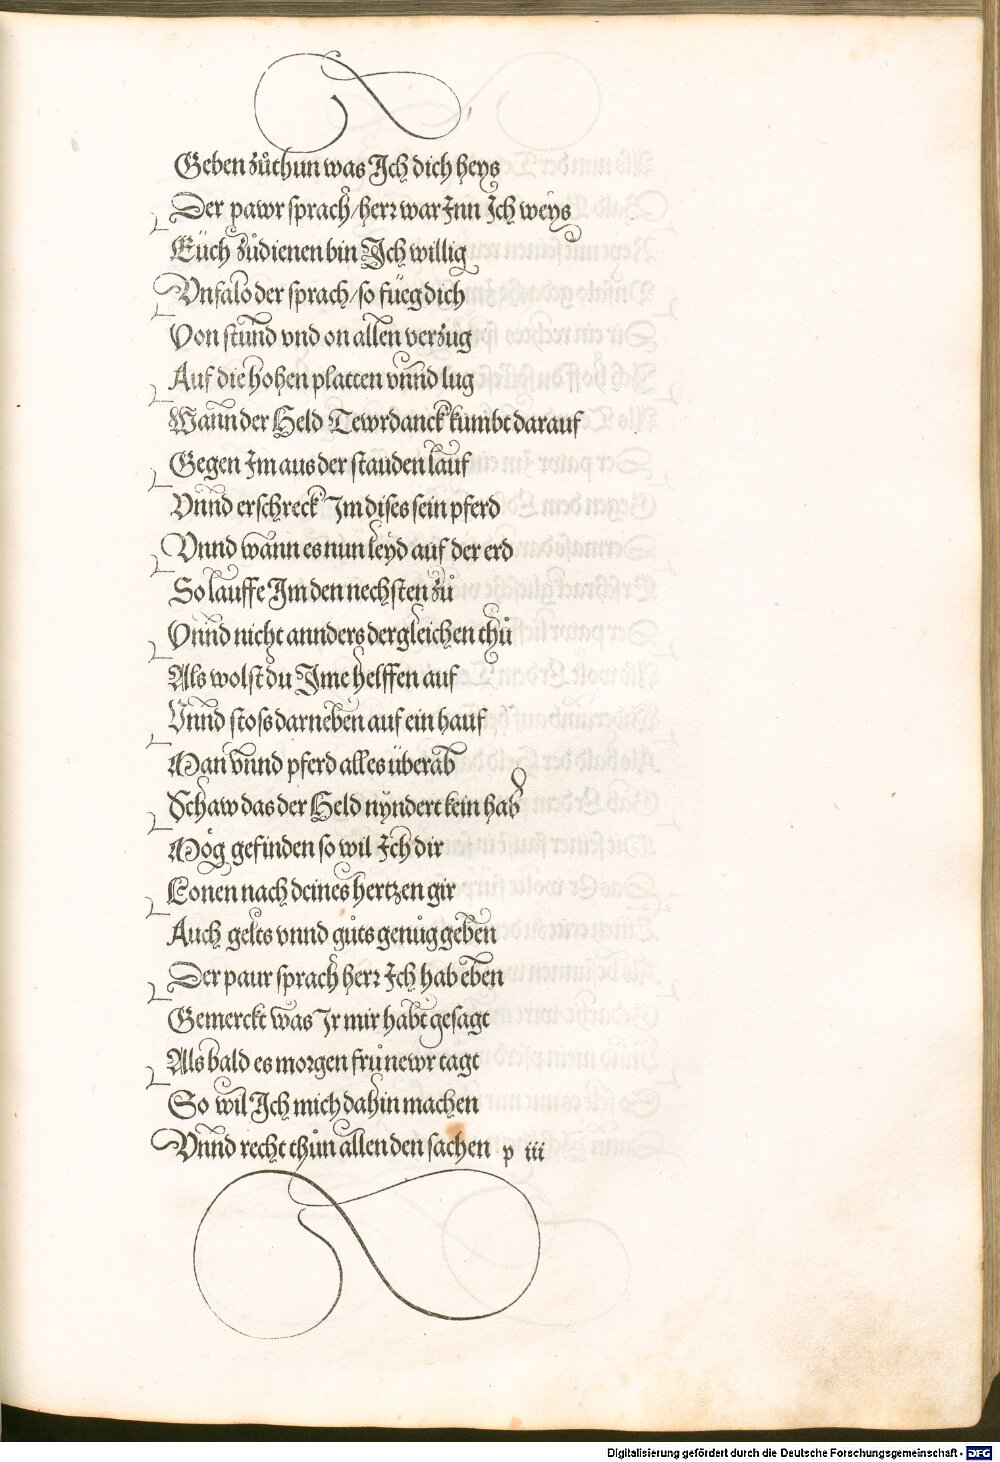 Geben zůthun was Ich dich heys
Der pawr sprach/herr war Inn Ich weys
Eüch zůdienen bin Ich willig
Vnfalo der sprach/so füeg dich
Von stund vnd on allen verzug
Auf die hohen platten vnnd lug
Wann der Held Tewrdanck kumbt darauf
Gegen Im aus der stauden lauf
Vnnd erschreck Im dises sein pferd
Vnnd wann es nun leyd auf der erd
So lauffe Im den nechsten zů
Vnnd nicht annders dergleichen thů
Als wolst du Ime helffen auf
Vnnd stoss darneben auf ein hauf
Man vnnd pferd alles überab
Schaw das der Held nyndert kein hab
Mög gefinden so wil Ich dir
Lonen nach deines hertzen gir
Auch gelts vnnd gůts genůg geben
Der paur sprach herr Ich hab eben
Gemerckt was Ir mir habt gesagt
Als bald es morgen frů newr tagt
So wil Ich mich dahin machen
Vnnd recht thůn allen den sachen p iii
Digitalisierung gefördert durch die Deutsche Forschungsgemeinschaft - DFG